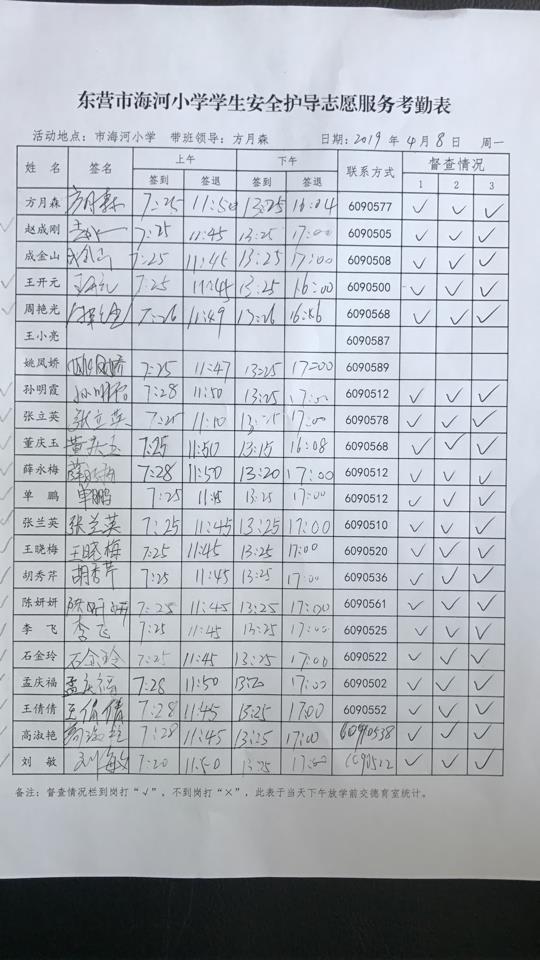 东营市海河小学学生安全护导志愿服务考勤表
活动地点：市海河小学 带班领导：方月森 日期：2019 年 4 月 8 日 周一
姓 名 签名 上午 下午 联系方式 督查情况
签到 签退 签到 签退 1 2 3
方月森 方月森 7:25 11:50 13:25 16:04 6090577 ✓ ✓ ✓
赵成刚 7:25 11:45 13:25 17:00 6090505 ✓ ✓ ✓
成金山 成金山 7:25 11:45 13:25 17:00 6090508 ✓ ✓ ✓
王开元 7:25 11:45 13:25 16:00 6090500 ✓ ✓ ✓
周艳光 7:26 11:49 13:26 16:46 6090568 ✓ ✓ ✓
王小亮 6090587
姚凤娇 姚凤娇 7:25 11:47 13:25 17:00 6090589
孙明霞 孙明霞 7:28 11:50 13:25 17:00 6090512 ✓ ✓ ✓
张立英 张立英 7:25 11:10 17:00 6090578 ✓ ✓ ✓
董庆玉 董庆玉 7:25 11:50 13:15 16:08 6090568 ✓ ✓ ✓
薛永梅 薛永梅 7:28 11:50 13:20 17:00 6090512 ✓ ✓ ✓
单 鹏 单鹏 7:25 11:45 13:25 17:00 6090512 ✓ ✓ ✓
张兰英 张兰英 7:25 11:45 13:25 17:00 6090510 ✓ ✓ ✓
王晓梅 王晓梅 7:25 11:45 13:25 17:00 6090520 ✓ ✓ ✓
胡秀芹 胡秀芹 7:25 11:45 13:25 17:00 6090536 ✓ ✓ ✓
陈妍妍 陈妍妍 7:25 11:45 13:25 17:00 6090561 ✓ ✓ ✓
李 飞 李飞 7:25 11:45 13:25 17:00 6090525 ✓ ✓ ✓
石金玲 石金玲 7:25 11:45 13:25 17:00 6090522 ✓ ✓ ✓
孟庆福 孟庆福 7:28 11:50 17:00 6090502 ✓ ✓ ✓
王倩倩 王倩倩 7:28 11:45 13:25 17:00 6090552 ✓ ✓ ✓
高淑艳 高淑艳 7:28 11:45 13:25 17:00 6090538 ✓ ✓ ✓
刘 敏 刘敏 7:20 11:50 13:25 17:00 6090512 ✓ ✓ ✓
备注：督查情况栏到岗打“√”，不到岗打“×”，此表于当天下午放学前交德育室统计。